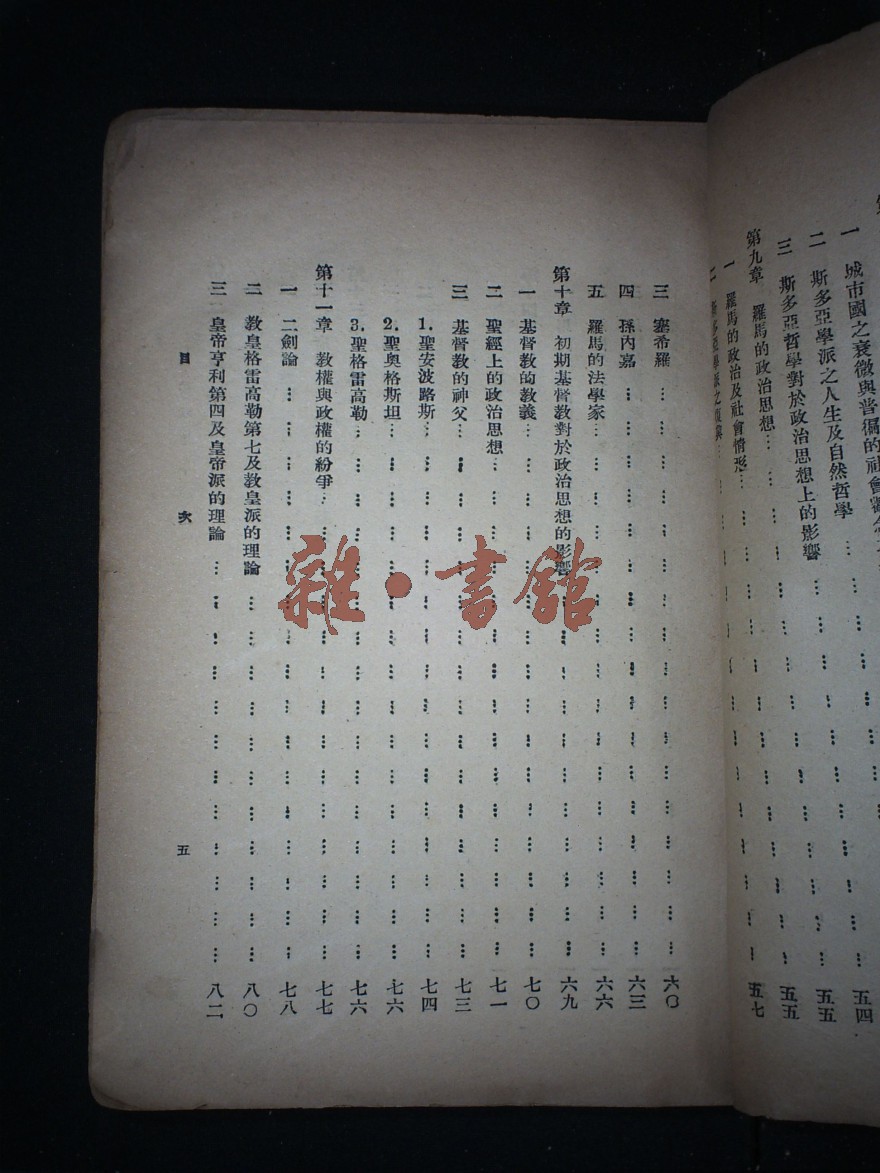 一 城市國之衰微與普徧的社會觀念 … 五四
二 斯多亞學派之人生及自然哲學 … 五五
三 斯多亞哲學對於政治思想上的影響 … 五五
第九章 羅馬的政治思想 … 五七
一 羅馬的政治及社會情形 …
二 斯多亞學派之復興 …
三 塞希羅 … 六〇
四 孫內嘉 … 六三
五 羅馬的法學家 … 六六
第十章 初期基督教對於政治思想的影響 … 六九
一 基督教的教義 … 七〇
二 聖經上的政治思想 … 七一
三 基督教的神父 … 七三
1. 聖安波路斯 … 七四
2. 聖奧格斯坦 … 七六
3. 聖格雷高勒 … 七六
第十一章 教權與政權的紛爭 … 七七
一 二劍論 … 七八
二 教皇格雷高勒第七及教皇派的理論 … 八〇
三 皇帝亨利第四及皇帝派的理論 … 八二
目 次 五
雜·書館